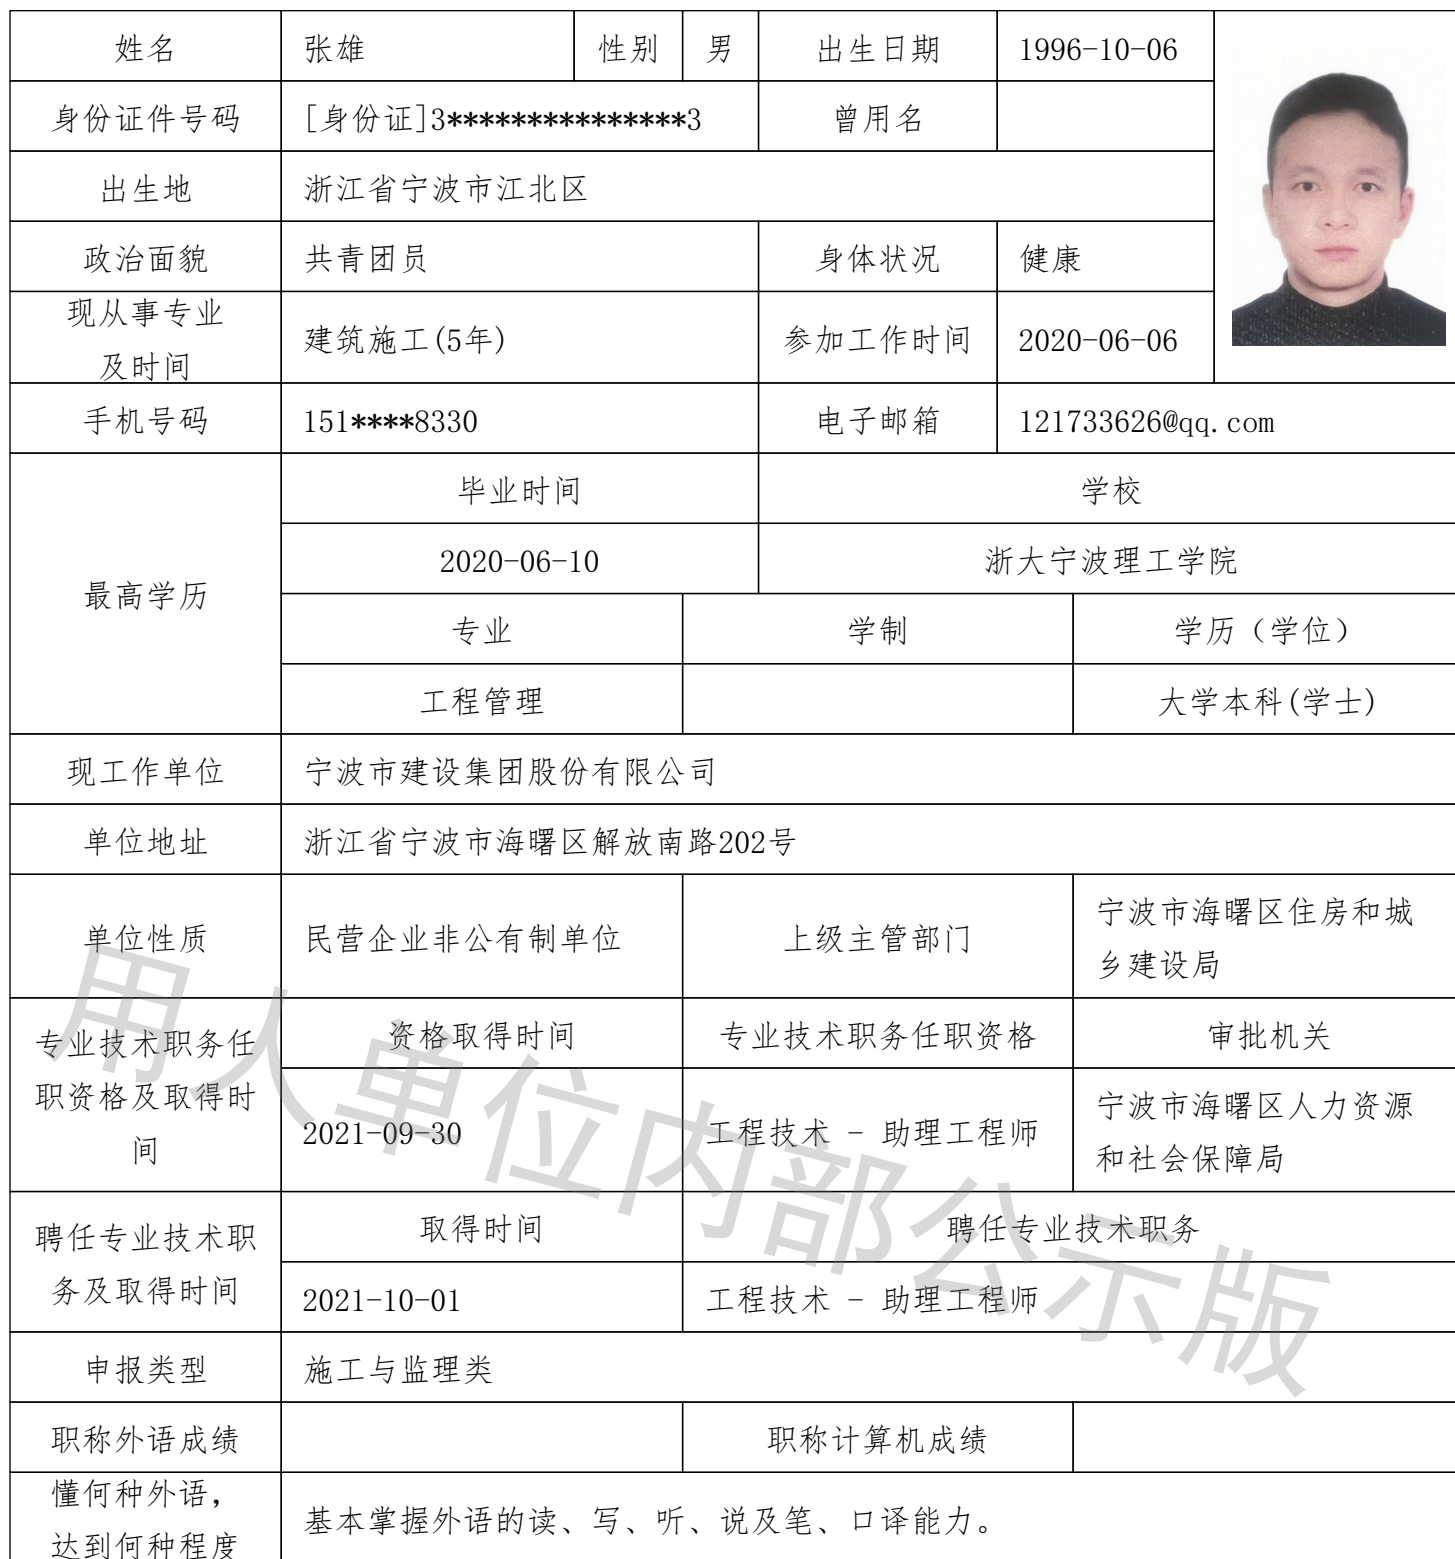 姓名 张雄 性别 男 出生日期 1996-10-06
身份证件号码 [身份证]3***************3 曾用名
出生地 浙江省宁波市江北区
政治面貌 共青团员 身体状况 健康
现从事专业
及时间
建筑施工(5年) 参加工作时间 2020-06-06
手机号码 151****8330 电子邮箱 121733626@qq.com
最高学历
毕业时间 学校
2020-06-10 浙大宁波理工学院
专业 学制 学历（学位）
工程管理 大学本科(学士)
现工作单位 宁波市建设集团股份有限公司
单位地址 浙江省宁波市海曙区解放南路202号
单位性质 民营企业非公有制单位 上级主管部门
宁波市海曙区住房和城
乡建设局
专业技术职务任
职资格及取得时
间
资格取得时间 专业技术职务任职资格 审批机关
2021-09-30 工程技术 - 助理工程师
宁波市海曙区人力资源
和社会保障局
聘任专业技术职
务及取得时间
取得时间 聘任专业技术职务
2021-10-01 工程技术 - 助理工程师
申报类型 施工与监理类
职称外语成绩 职称计算机成绩
懂何种外语，
达到何种程度
基本掌握外语的读、写、听、说及笔、口译能力。
用人单位内部公示版